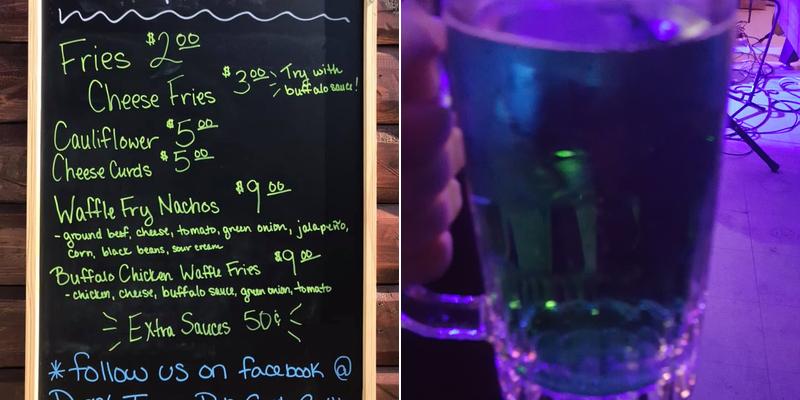 Fries $2.00
Cheese Fries $3.00 Try with
buffalo sauce!
Cauliflower $5.00
Cheese Curds $5.00
Waffle Fry Nachos $9.00
- ground beef, cheese, tomato, green onion, jalapeño,
corn, black beans, sour cream
Buffalo Chicken Waffle Fries $9.00
- chicken, cheese, buffalo sauce, green onion, tomato
Extra Sauces 50¢
*follow us on facebook @